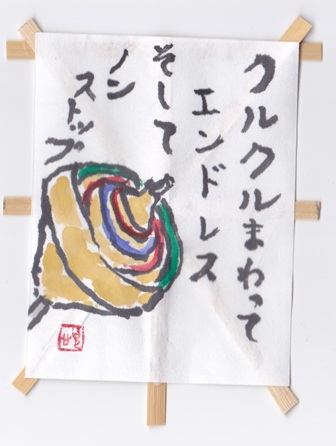 クルクルまわって
エンドレス
そして
ノン
ストップ